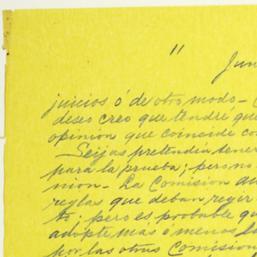 "
Jun
juicios ó de otro modo-
deseo creo que tendré que
opinion que coincide co
Seijas pretendia tener
para la prueba; pero no
nion- La Comision
reglas que deban reger
pero es probable qu
adopte, mas ó menos la
por las otras Comision